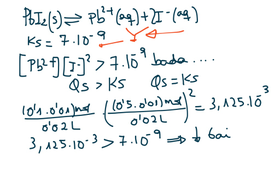 PbI₂(s) ⇌ Pb²⁺(aq) + 2I⁻(aq)
Ks = 7.10⁻⁹
[Pb²⁺][I⁻]² > 7.10⁻⁹ bada ....
Qs > Ks Qs = Ks
(0'1.0'01)mol / 0'02L · ((0'5.0'01)mol / 0'02L)² = 3,125.10⁻³
3,125.10⁻³ > 7.10⁻⁹ ⇒ ↓ bai